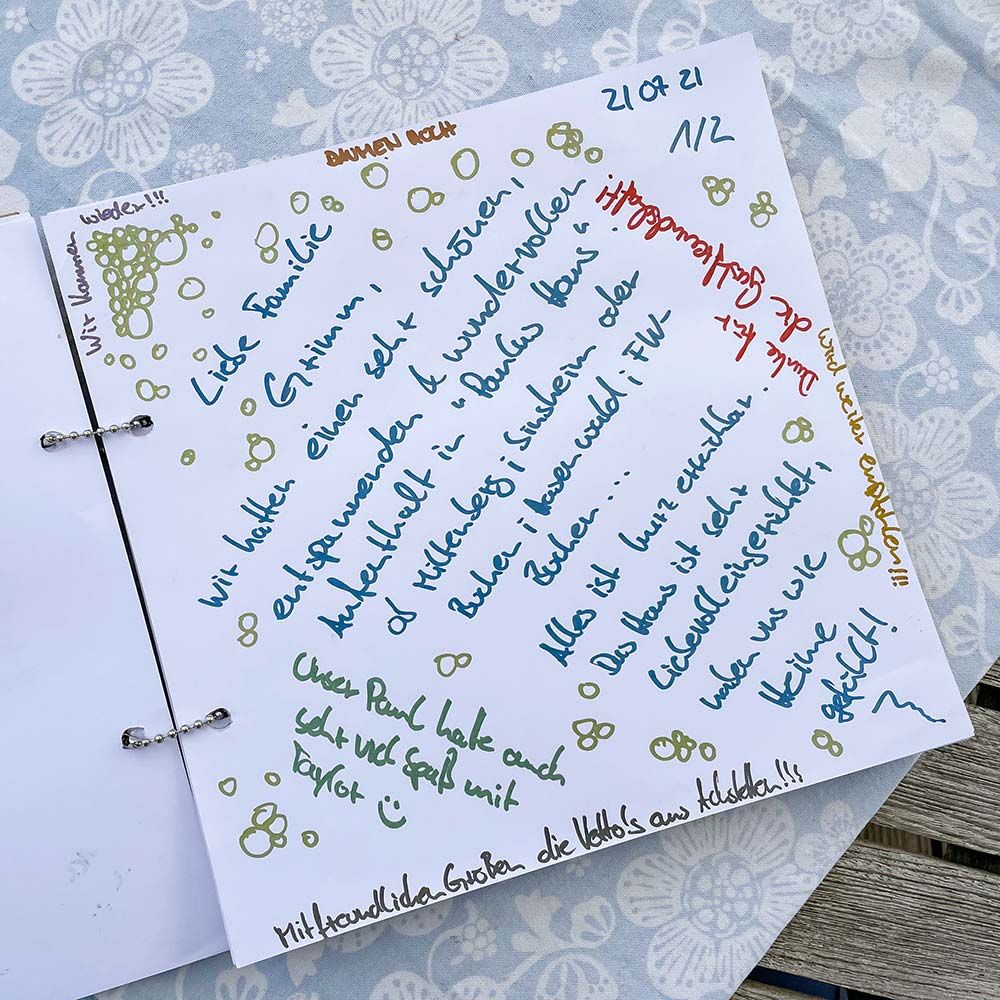 21 07 21
1/2
DAUMEN HOCH
Wir kommen wieder!!!
Liebe Familie
Grimm,
wir hatten einen sehr schönen,
entspannenden & wundervollen
Aufenthalt in "Paulas Haus".
ob Miltenberg, Sinsheim oder
Buchen, Odenwald, FW-
Buchen...
Alles ist kurz erreichbar.
Das Haus ist sehr
liebevoll eingerichtet,
haben uns wie
Heime
gefühlt!
Danke für
die Gastfreundschaft!!
wird weiter empfohlen!!!
Unser Paul hate auch
sehr viel Spaß mit
Taylor
Mit freundlichen Größen die Vetto's aus Achstetten!!!